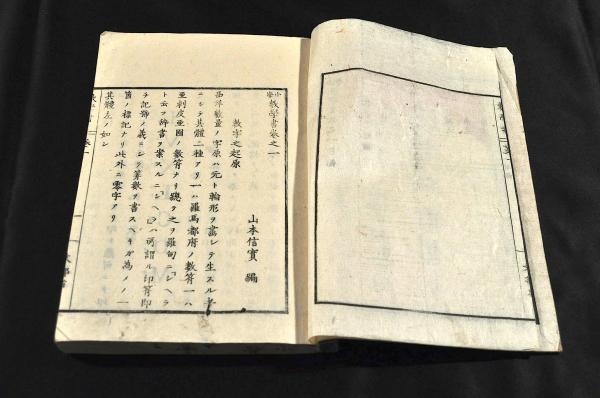 小學數學書卷之一
山本信實 編
數字之起原
西洋數量ノ字原ハ元ト輪形ヲ畫シテ生スル者
ニシテ其體二種アリ一ハ羅馬都府ノ數符一ハ
亜剌皮亜國ノ數符ナリ總テ之ヲ羅甸ニ
ト云フ辞書ヲ案スルニ ハ所謂ル印符即
チ記號ノ義ニシテ算數ヲ書スヘキガ為ノ一
箇ノ標記ナリ此外ニ零字アリ
其體左ノ如シ